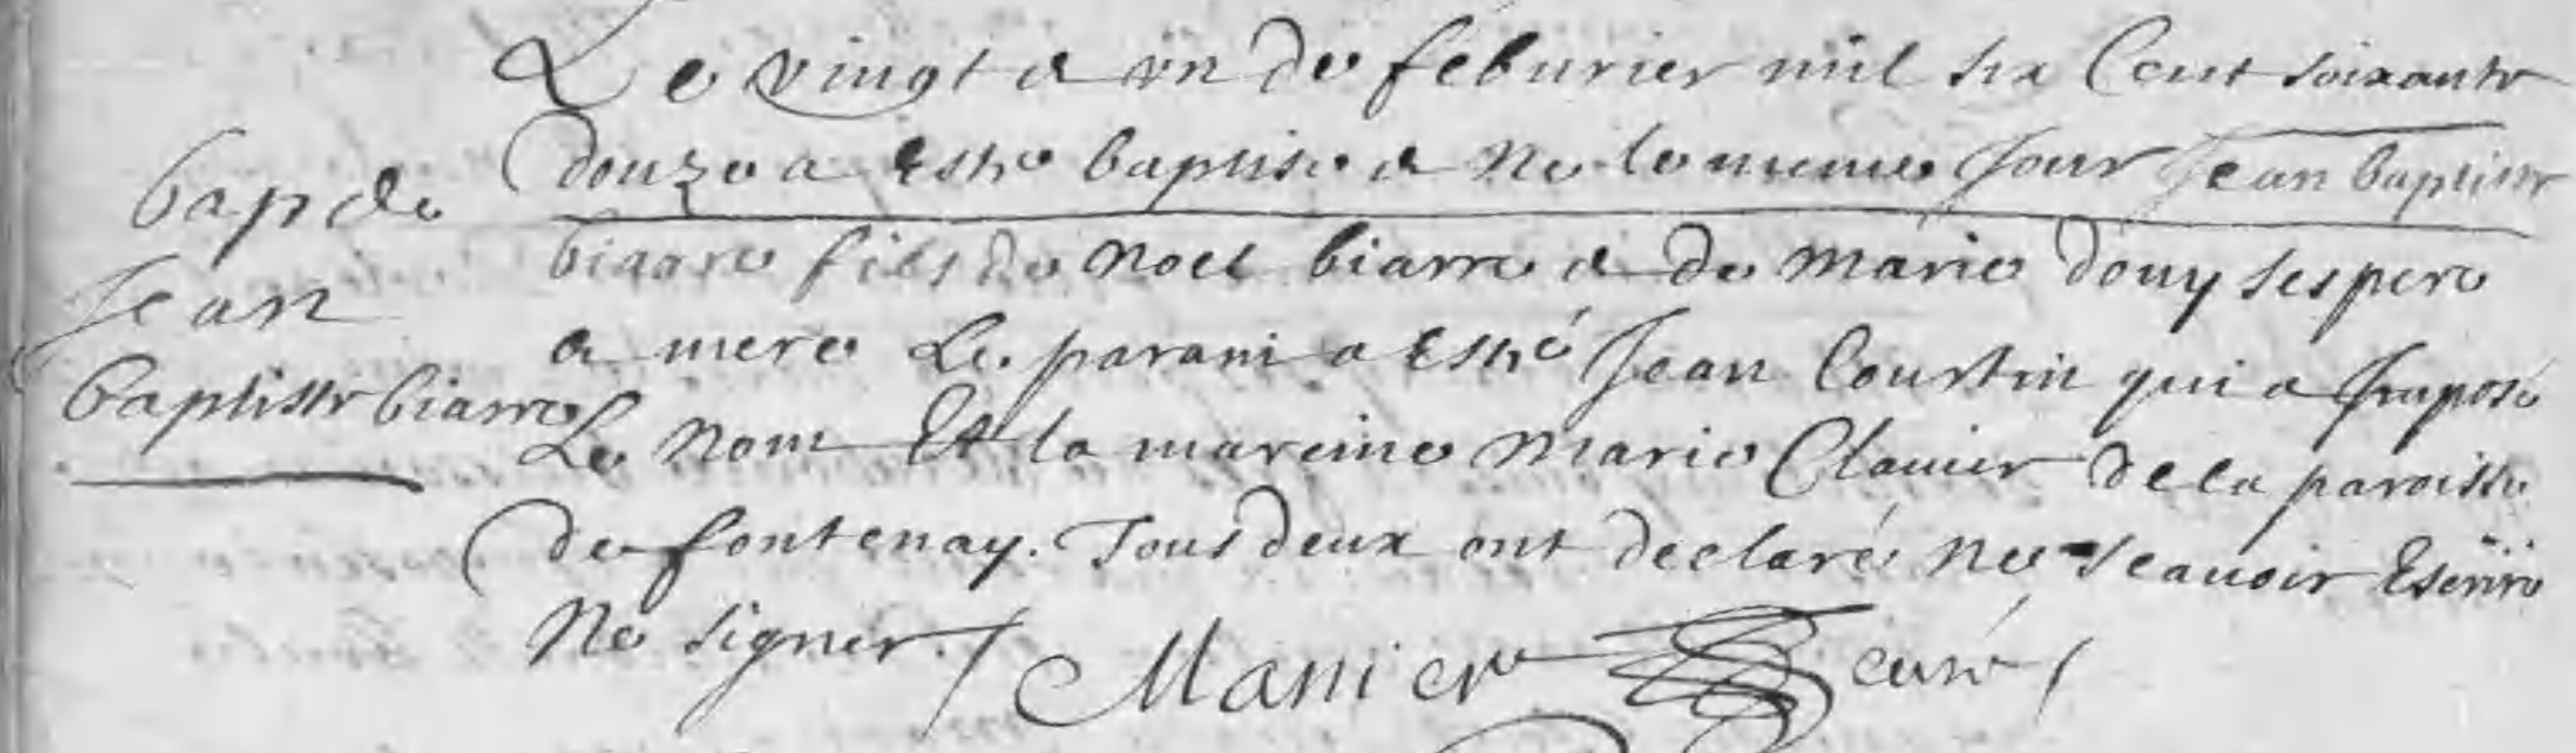 Le vingt & un de feburier mil six Cent soixante
bap de
douze a Esté baptisé & Né le meme Jour Jean baptiste
Jean
biarre fils de Noel biarre & de Marie douy ses pere
& mere Le parain a Esté Jean Courtin qui a Imposé
baptiste biarre
Le Nom Et la mareine Marie Clanier de la paroisse
de fontenay. Tous deux ont declaré Ne scauoir Escrire
Ne signer./ Manier curé